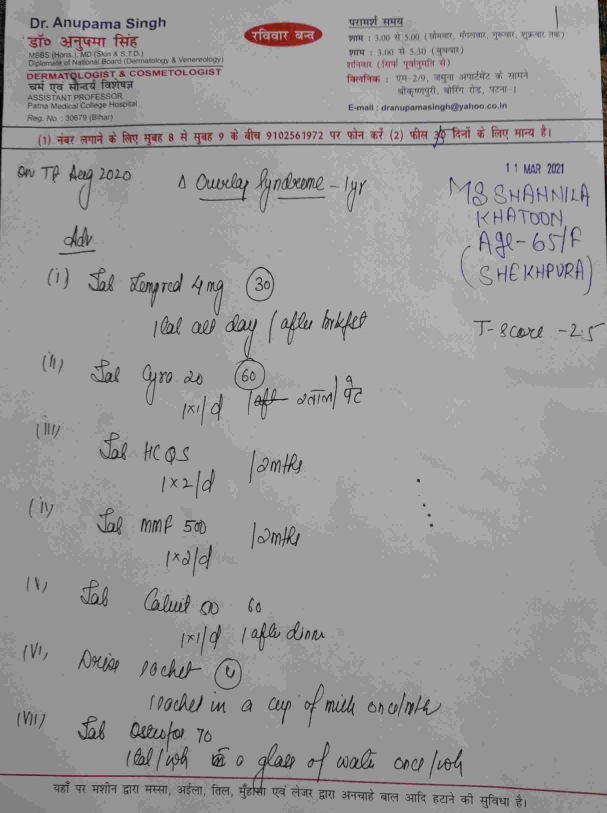 Dr. Anupama Singh
डॉ० अनुपमा सिंह
MBBS (Hons.), MD (Skin & S.T.D.)
Diplomate of National Board (Dermatology & Venereology)
DERMATOLOGIST & COSMETOLOGIST
चर्म एवं सौन्दर्य विशेषज्ञ
ASSISTANT PROFESSOR
Patna Medical College Hospital
Reg. No : 30679 (Bihar)
रविवार बन्द
परामर्श समय
शाम : 3.00 से 5.00 (सोमवार, मंगलवार, गुरूवार, शुक्रवार तक)
शाम : 3.00 से 5.30 (बुधवार)
शनिवार (सिर्फ पूर्वानुमति से)
क्लिनिक : एम-2/9, जमुना अपार्टमेंट के सामने
श्रीकृष्णपुरी, बोरिंग रोड, पटना-1
E-mail : dranupamasingh@yahoo.co.in
(1) नंबर लगाने के लिए सुबह 8 से सुबह 9 के बीच 9102561972 पर फोन करें (2) फीस दिनों के लिए मान्य है।
11 MAR 2021
on Tt Aug 2020
Overlap Syndrome - 1yr
MS SHAHNILA
KHATOON
Age-65/F
(SHEKHPURA)
T-score -2.5
Adv
(i) Tab Lempred 4mg 30
1tab all day / after brkfst
(ii) Tab Cyra 20 60
1x1/d खाली पेट
(iii) Tab HCQS /2mths
1x2/d
(iv) Tab MMF 500 /2mths
1x2/d
(v) Tab 60
1x1/d / after dinner
(vi) Drise sachet 4
1sachet in a cup of milk once/mth
(vii) Tab Osteofos 70
1tab/wk a glass of water once/wk
यहाँ पर मशीन द्वारा मस्सा, अईला, तिल, मुँहासा एवं लेजर द्वारा अनचाहे बाल आदि हटाने की सुविधा है।